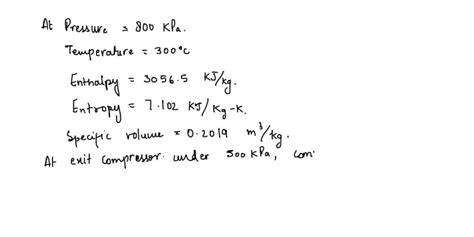 At Pressure = 800 KPa.
Temperature = 300°C
Enthalpy = 3056.5 KJ/kg.
Entropy = 7.102 KJ/Kg-K.
Specific volume = 0.2019 m³/kg.
At exit compressor under 500 KPa, com